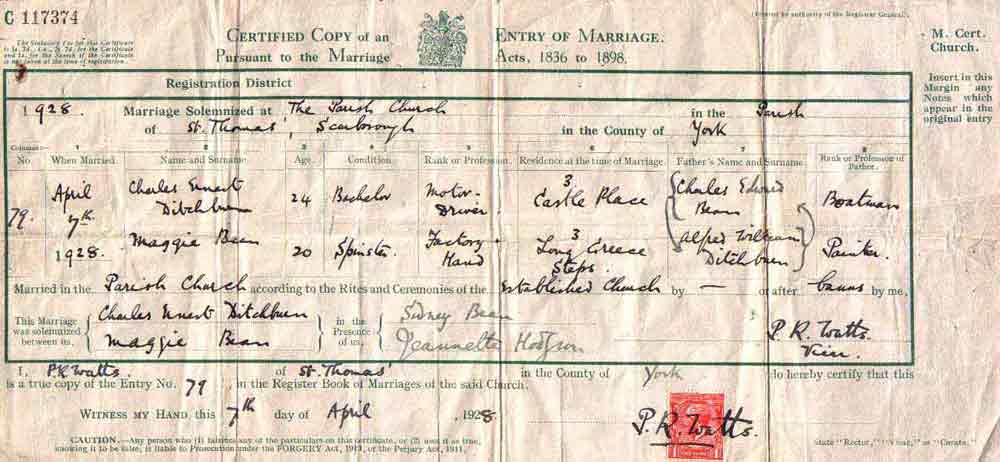 C 117374
(Printed by authority of the Registrar General.)
CERTIFIED COPY of an ENTRY OF MARRIAGE.
Pursuant to the Marriage Acts, 1836 to 1898.
M. Cert.
Church.
Insert in this
Margin any
Notes which
appear in the
original entry
Registration District
1928. Marriage Solemnized at The Parish Church in the Parish
of St. Thomas', Scarborough in the County of York
Columns:— 1 2 3 4 5 6 7 8
No. When Married. Name and Surname Age. Condition Rank or Profession. Residence at the time of Marriage. Father's Name and Surname Rank or Profession of Father.
79. April 7th 1928. Charles Ernest Ditchburn 24 Bachelor Motor-Driver 3 Castle Place Charles Edward Bean Boatman
Maggie Bean 20 Spinster Factory Hand 3 Long Greece Steps. Alfred William Ditchburn Painter.
Married in the Parish Church according to the Rites and Ceremonies of the Established Church by — or after banns by me,
This Marriage was solemnized between us, Charles Ernest Ditchburn Maggie Bean in the Presence of us, Sidney Bean Jeannette Hodgson
P. R. Watts
Vicar.
I, P. R. Watts. of St. Thomas' in the County of York do hereby certify that this
is a true copy of the Entry No. 79 in the Register Book of Marriages of the said Church.
WITNESS MY HAND, this 7th day of April, 1928.
P. R. Watts.
CAUTION.—Any person who (1) falsifies any of the particulars on this certificate, or (2) uses it as true,
knowing it to be false, is liable to Prosecution under the FORGERY Act, 1913, or the Perjury Act, 1911.
State "Rector," "Vicar," or "Curate."